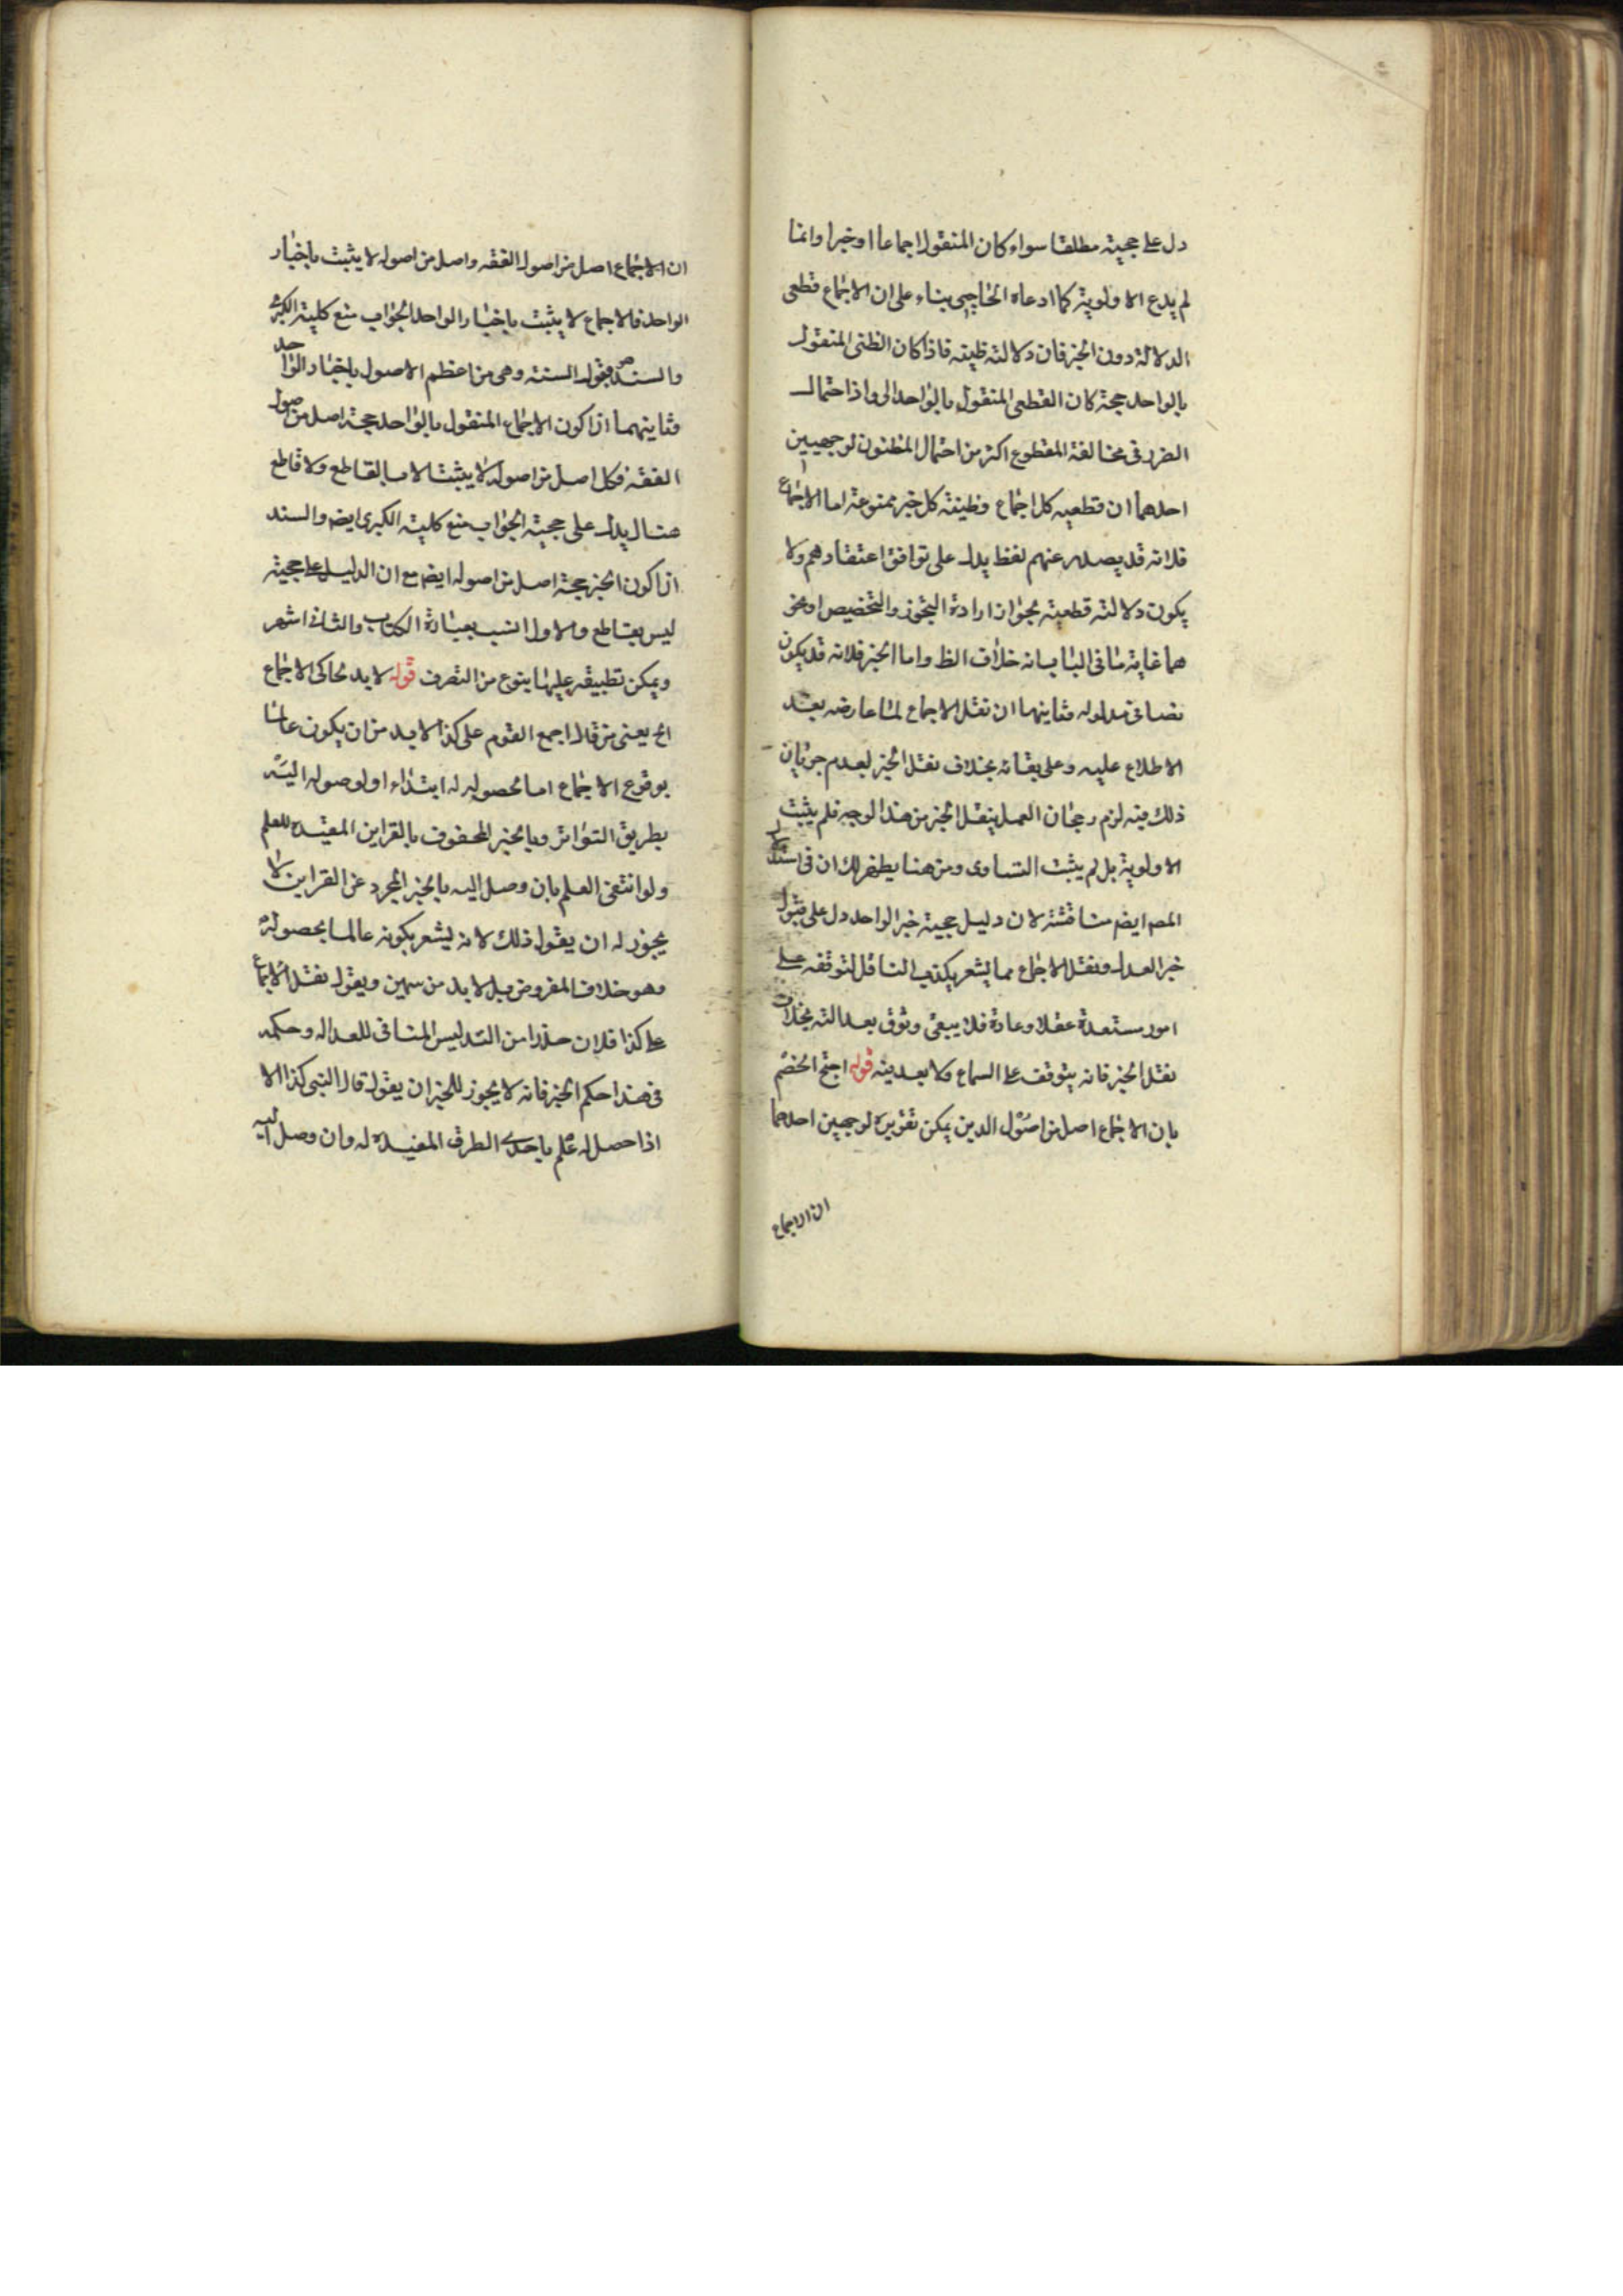 دل على حجيته مطلقا سواء كان المنقول اجماعا او خبرا وانما
لم يدع الاولوية كما ادعاه الحاجبى بناء على ان الاجماع قطعى
الدلالة دون الخبر فان دلالته ظنيه فاذا كان الظنى المنقول
بالواحد حجة كان القطعى المنقول بالواحد اولى واذ احتمال
الضرر فى مخالفة المقطوع اكثر من احتمال المظنون لوجهيين
احدهما ان قطعيه كل اجماع وظنيته كل خبر ممنوعة اما الاجماع
فلانه قد يصدر عنهم لفظ يدل على توافق اعتقادهم ولا
يكون دلالته قطعية بجواز ارادة التجوز والتخصيص او نحو
هما غاية ما فى الباب انه خلاف الظ واما الخبر فلانه قد يكون
نصا فى مدلوله وثاينهما ان نقل الاجماع لما عارضه بعد
الاطلاع عليه وعلى بقائه بخلاف نقل الخبر لعدم جريان
ذلك فيه لزم رجحان العمل بنقل الخبر من هذا الوجه فلم يثبت
الاولوية بل لم يثبت التساوى ومن هنا يظهر لك ان فى استدلال
المص ايضم مناقشة لان دليل حجية خبر الواحد دل على قبول
خبر العدل ونقل الاجماع مما يشعر بكذب الناقل لتوقفه على
امور مستبعدة عقلا وعادة فلا يبقى وثوق بعدالته بخلاف
نقل الخبر فانه يتوقف على السماع ولا بعد فيه قوله احتج الخصم
بان الاجماع اصل من اصول الدين يمكن تقريره لوجهين احدهما
ان الاجماع
ان الاجماع اصل من اصول الفقه واصل من اصوله لا يثبت باخبار
الواحد فالاجماع لا يثبت باخبار الواحد الجواب منع كلية الكبرى
والسند قبول السنة وهى من اعظم الاصول باخبار الواحد
وثاينهما ان كون الاجماع المنقول بالواحد حجة اصل من اصول
الفقه فكل اصل من اصوله لا يثبت الا بالقاطع ولا قاطع
هنا يدل على حجية الجواب منع كلية الكبرى ايضم والسند
ان كون الخبر حجة اصل من اصوله ايضم مع ان الدليل على حجيته
ليس بقاطع والاول انسب بعبارة الكتاب والثانى اشهر
ويمكن تطبيقه عليها بنوع من التصرف قوله لا بد لحاكى الاجماع
الخ يعنى من قال اجمع القوم على كذا لا بد من ان يكون عالما
بوقوع الاجماع اما بحصوله له ابتداء او لوصوله اليه
بطريق التواتر وبالخبر المحفوف بالقراين المفيدة للعلم
ولو انتفى العلم بان وصل اليه بالخبر المجرد عن القراين لا
يجوز له ان يقول ذلك لانه ليشعر بكونه عالما بحصوله
وهو خلاف المفروض بل لا بد من ... ويقول نقل الاجماع
على كذا فلان حذرا من التدليس المنافى للعدالة وحكمه
فى هذا حكم الخبر فانه لا يجوز للمخبر ان يقول قال النبى كذا الا
اذا حصل له علم باحدى الطرق المفيدة له وان وصل اليه